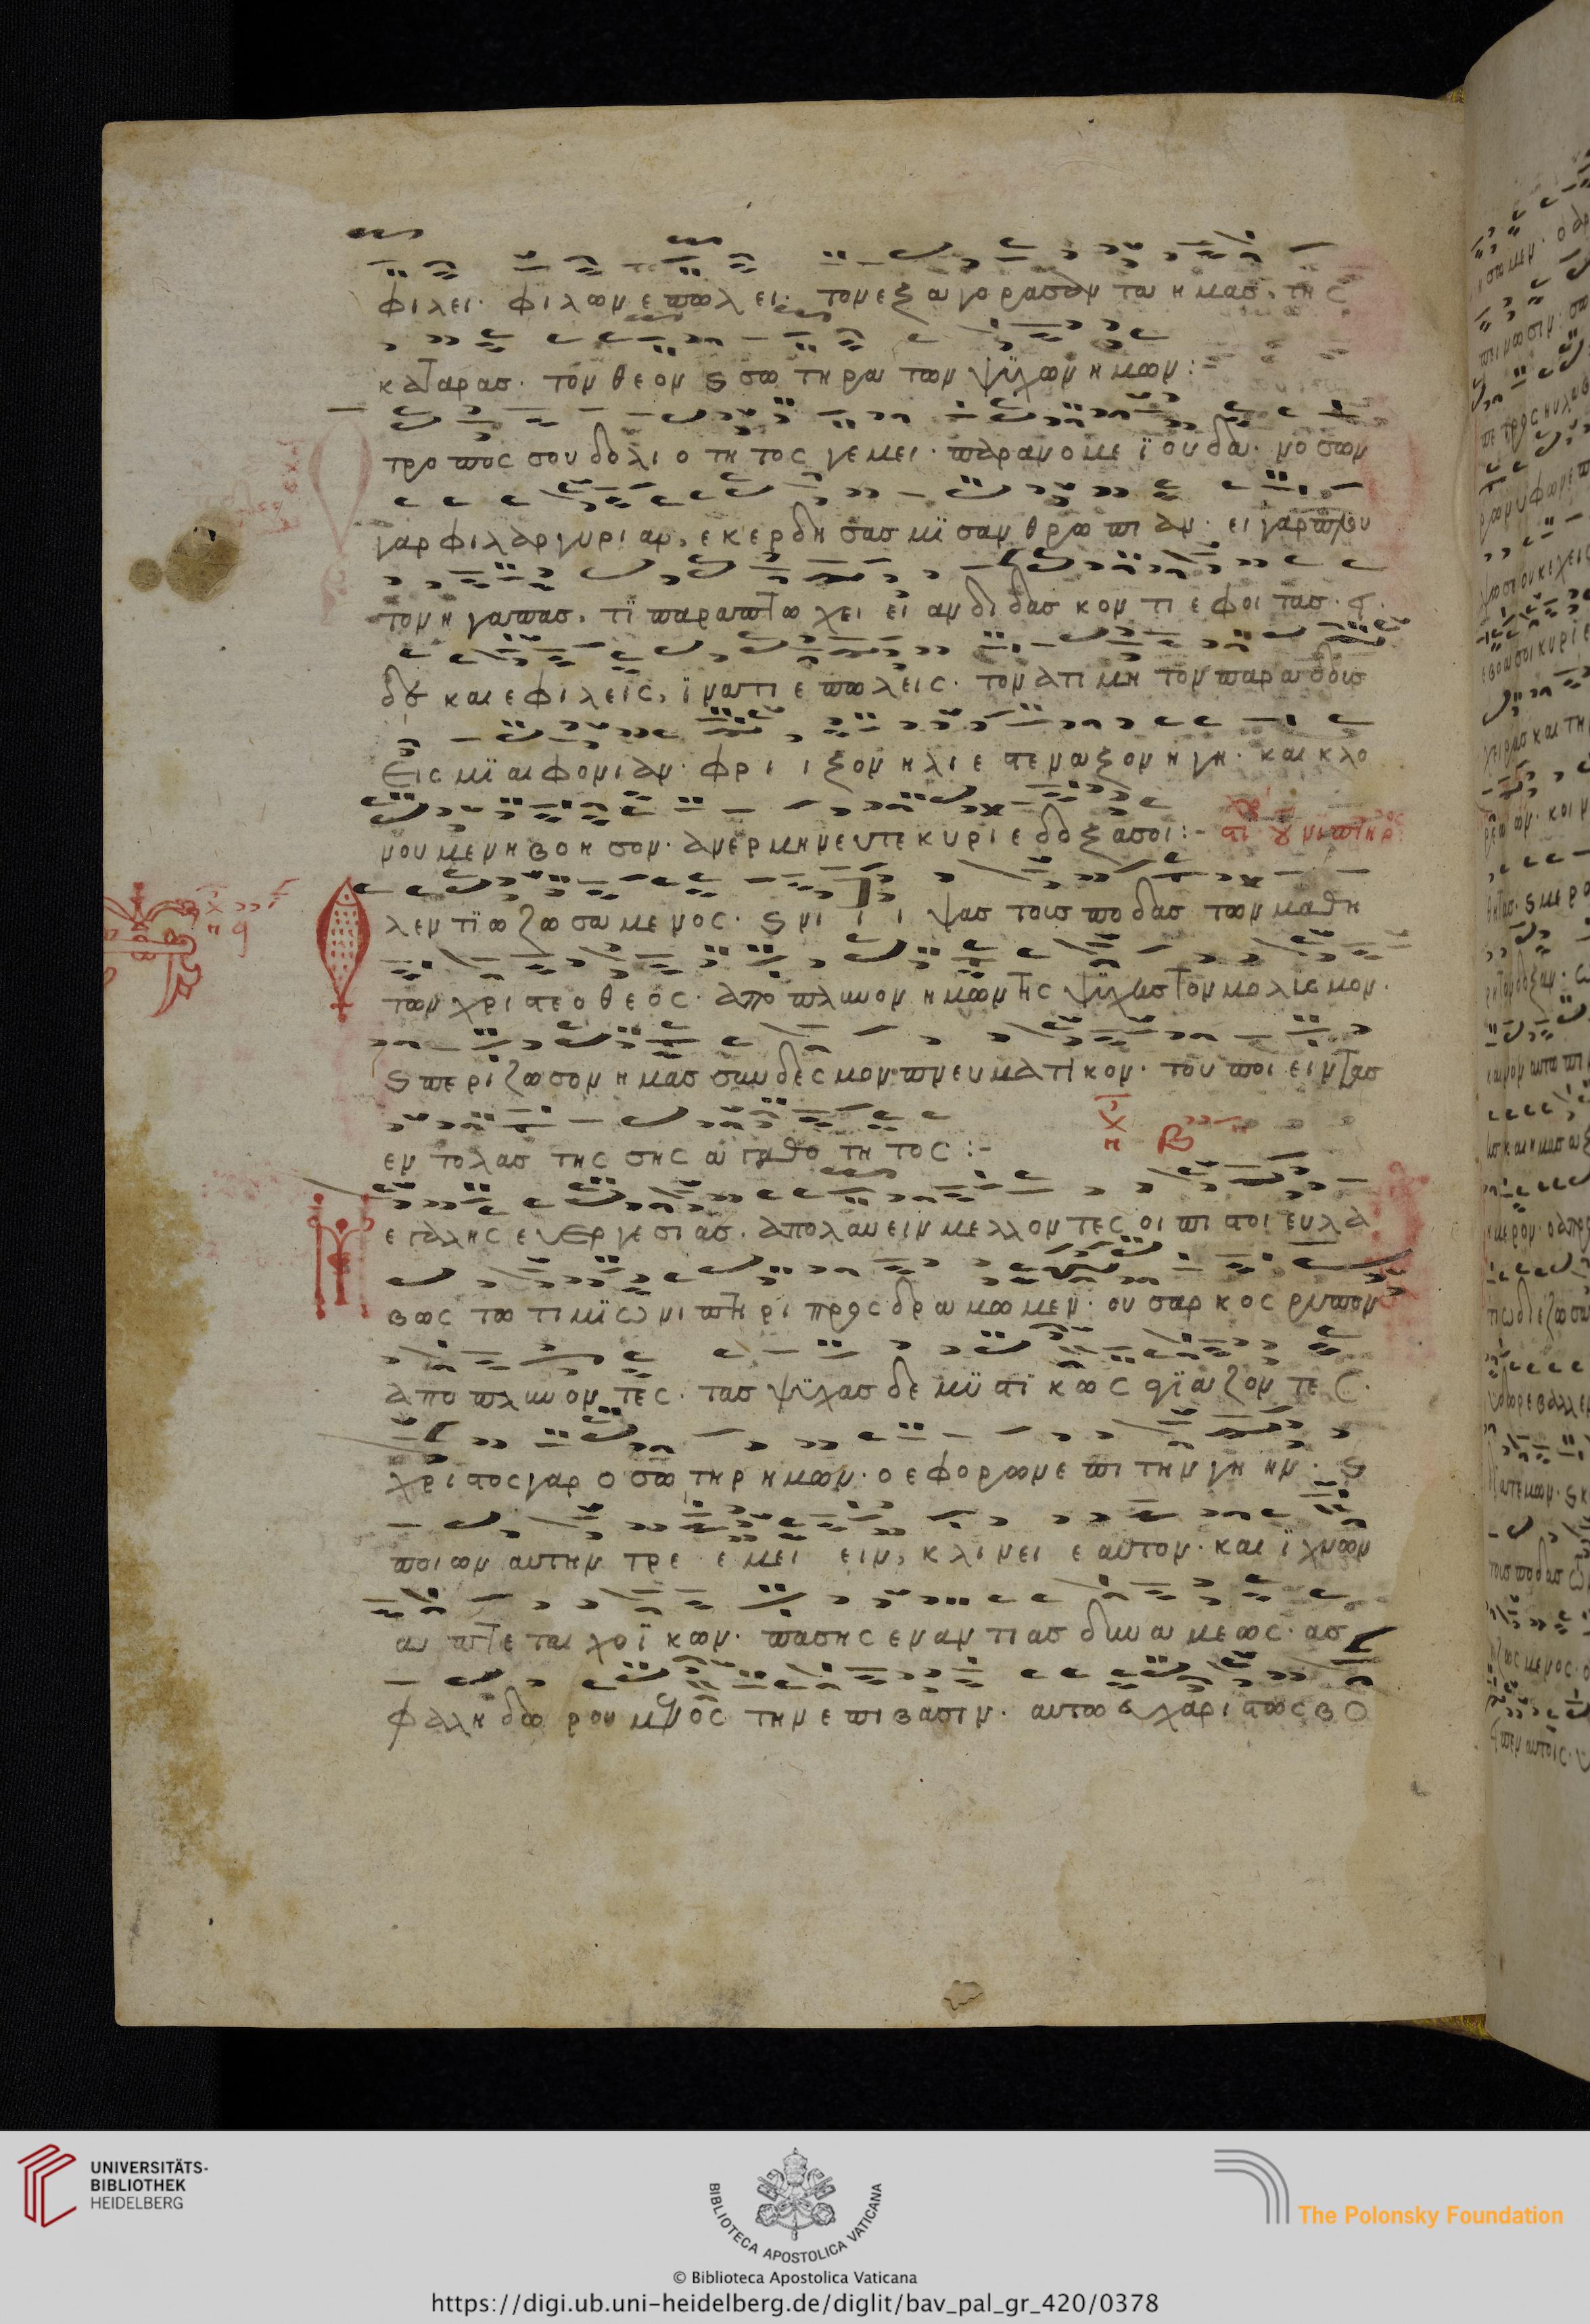 φιλει· φιλων επωλει· τον εξαγορασαντα ημας, της
καταρας· τον θεον ϛ σωτηρα των ψϋχων ημων:-
τροπος σου δολιοτητος γεμει· παρανομε ϊουδα· νοσων
γαρ φιλαργυριαν, εκερδησας μϊσανθρωπιαν· ει γαρ πλου
τον ηγαπας, τϊ
εφοιτας·
και εφιλεις, ϊνα τι επωλεις· τον ατιμητον
εις μϊαιφονιαν· φριιξον ηλιε στεναξον η γη· και κλο
νουμενη βοησον· ανερμηνευτε κυριε δοξα σοι:-
λεντϊω ζωσαμενος· ϛ νιιιψας τους ποδας των μαθη
των χριστε ο θεος· αποπλυνον ημων της ψϋχης τον μολισμον·
ϛ περιζωσον ημας συνδεσμον πνευματικον· του ποιειν τας
εντολας της σης αγαθοτητος:-
εγαλης ευεργεσιας· απολαυειν μελλοντες οι πιστοι ευλα
βως τω τιμϊω νιπτηρι προςδραμωμεν· ου σαρκος ρυπον
αποπλυνοντες· τας ψϋχας δε μϋστϊκως αγϊαζοντες·
χριστος γαρ ο σωτηρ ημων· ο εφορων επι την γηην· ϛ
ποιων αυτην τρεεμειειν, κλινει εαυτον· και ϊχνων
απτεται χοϊκων· πασης εναντιας δυναμεως· ασ
φαλη δωρουμενος την επιβασιν· αυτω ευχαριστως βο
UNIVERSITÄTS-
BIBLIOTHEK
HEIDELBERG
BIBLIOTECA APOSTOLICA VATICANA
The Polonsky Foundation
© Biblioteca Apostolica Vaticana
https://digi.ub.uni-heidelberg.de/diglit/bav_pal_gr_420/0378